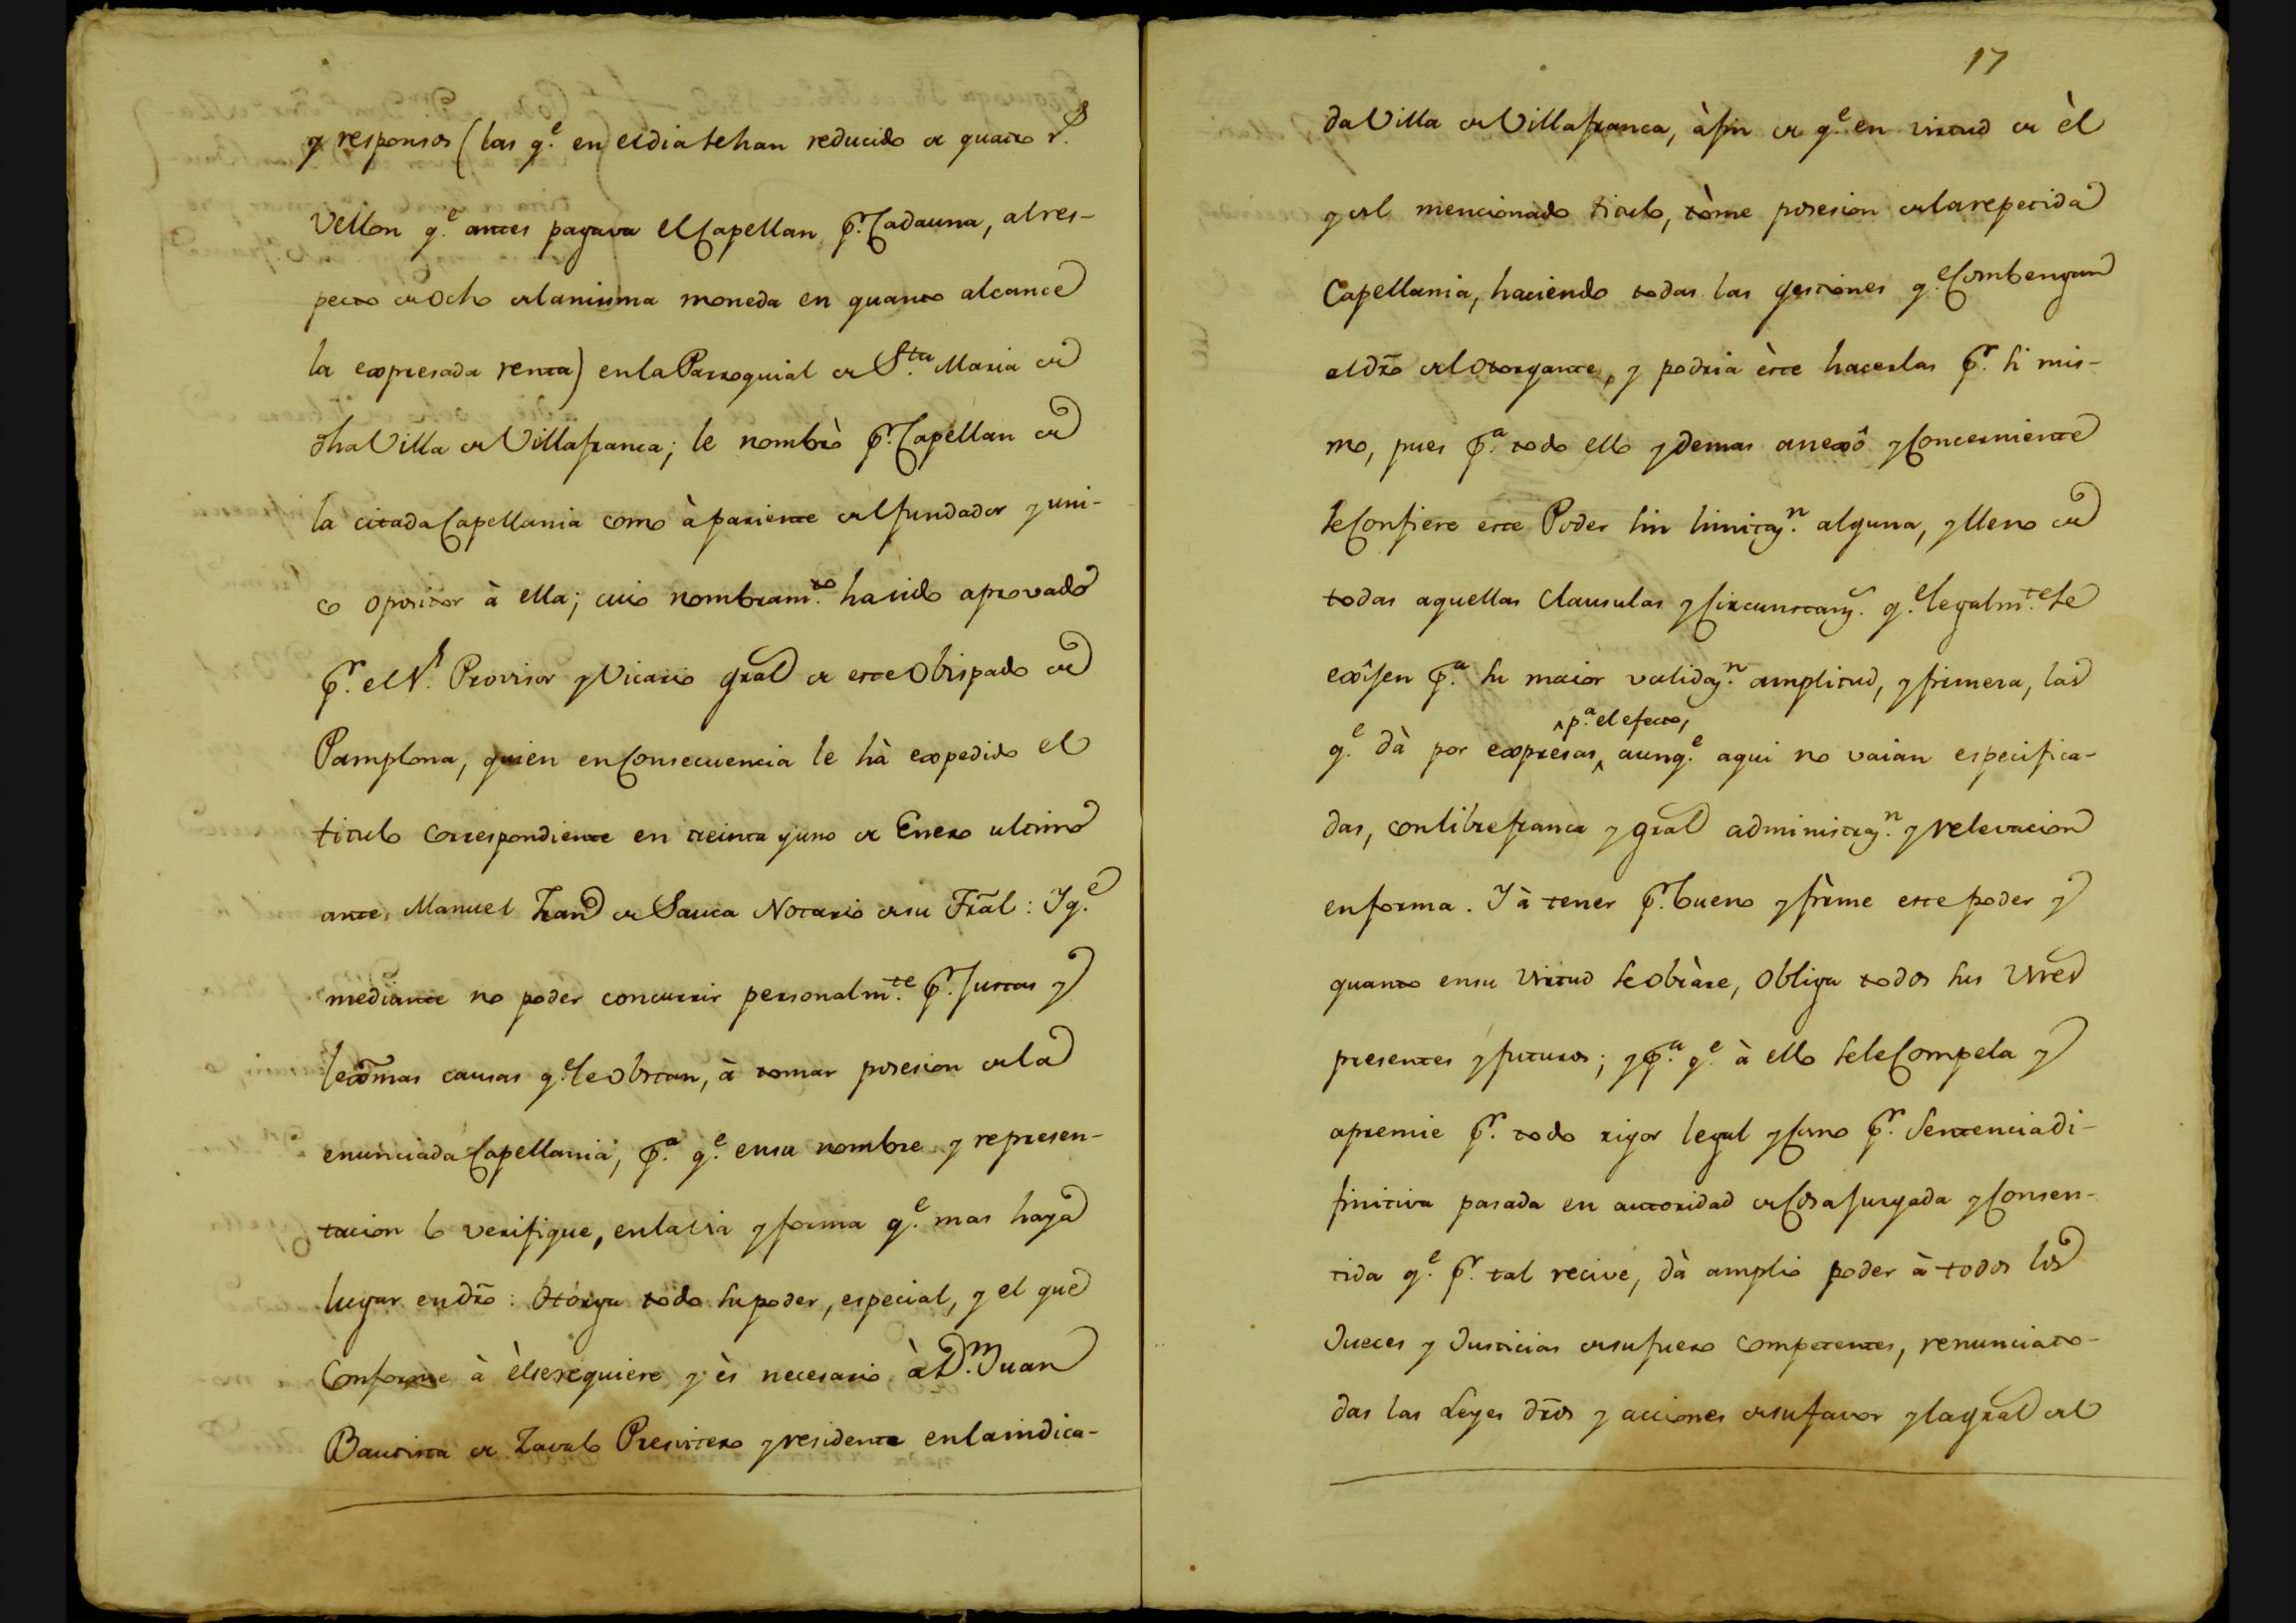 y responsos (las q.e en el dia se han reducido a quatro r.s
Vellon q.e antes pagava el Capellan p.r Cada una, al res-
pecto de Ocho de la misma moneda en quanto alcance
la expresada renta) en la Parroquial de S.ta Maria de
dha Villa de Villafranca; le nombrò p.r Capellan de
la citada Capellania como à pariente del fundador y uni-
co opositor à ella; cuio nombram.to ha sido aprovado
p.r el S.r Provisor y Vicario gral de este Obispado de
Pamplona, quien en Consecuencia le hà expedido el
titulo correspondiente en treinta y uno de Enero ultimo
ante Manuel de Sauca Notario de su Fral: Y q.e
mediante no poder concurrir personalm.te p.r Justas y
lexmas causas q.e le obstan, à tomar posesion de la
enunciada Capellania, p.a q.e en su nombre y represen-
tacion lo verifique, en la via y forma q.e mas haya
lugar en dro: Otorga todo su poder, especial, y el que
Conforme à èl se requiere y ès necesario à D.n Juan
Bautista de Zavalo Presvitero y residente en la indica-
17
da Villa de Villafranca, à fin de q.e en virtud de èl
y del mencionado titulo, tòme posesion de la repetida
Capellania, haciendo todas las gestiones q.e Combengan
al dro del Otorgante, y podria èste hacerlas p.r si mis-
mo, pues p.a todo ello y demas anexô y Concerniente
le Confiere este Poder sin limitaz.n alguna, y lleno de
todas aquellas Clausulas y Circunstanz.s q.e legalm.te se
exîjen p.a su maior validaz.n amplitud, y firmeza, las
^p.a el efecto,
q.e dà por expresas^ aunq.e aqui no vaian especifica-
das, con libre franca y gral administraz.n y relevacion
en forma. Y à tener p.r bueno y firme este poder y
quanto en su virtud se obràre, Obliga todos sus Vnes
presentes y futuros; y p.a q.e à ello se le Compela y
apremie p.r todo rigor legal y Como p.r Sentencia di-
finitiva pasada en autoridad de Cosa Juzgada y Consen-
tida q.e p.r tal recive, dà amplio poder à todos los
Jueces y Justicias de su fuero Competentes, renuncia to-
das las Leyes dros y acciones de su favor y la gral del